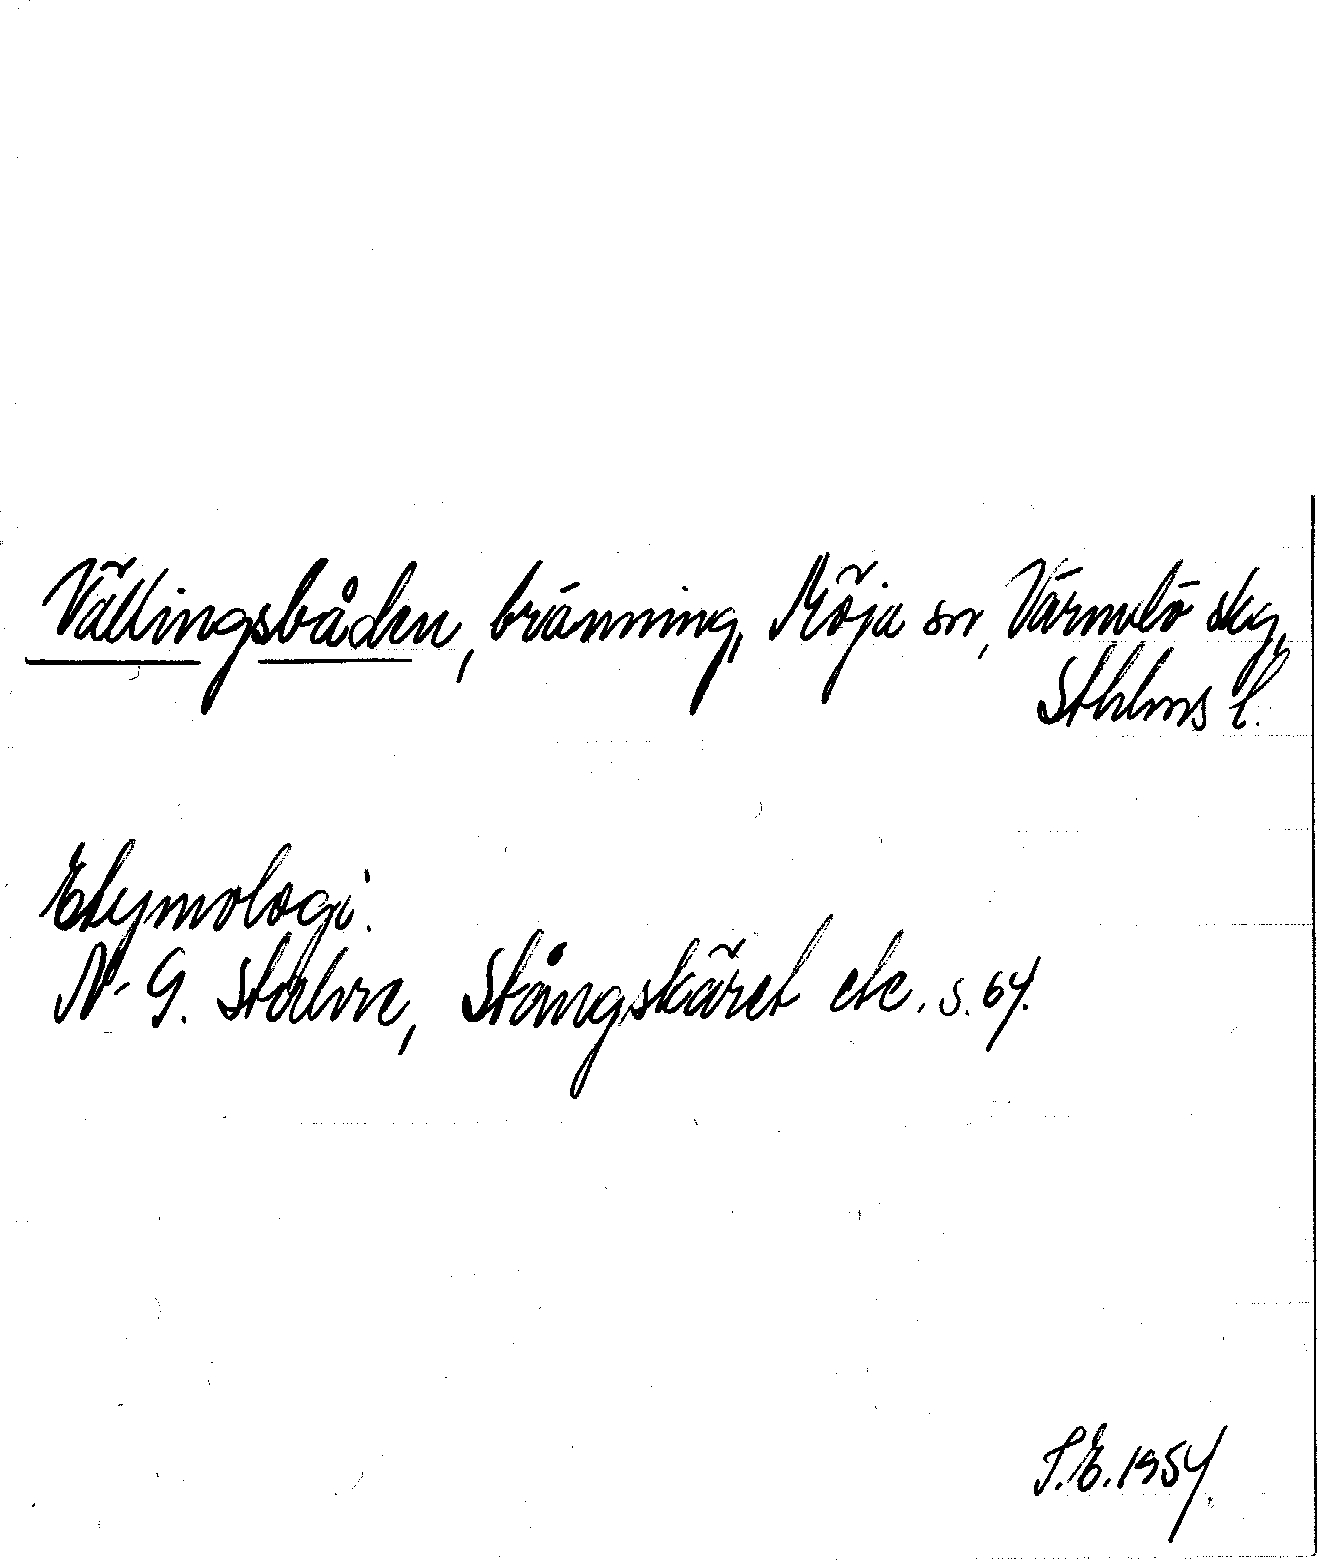 Vällingsbåden, bränning, Möja sn, Värmdö skg,
Sthlms l.
Etymologi.
N-G. Stahre, Stångskäret etc. s. 64.
S.E. 1954.